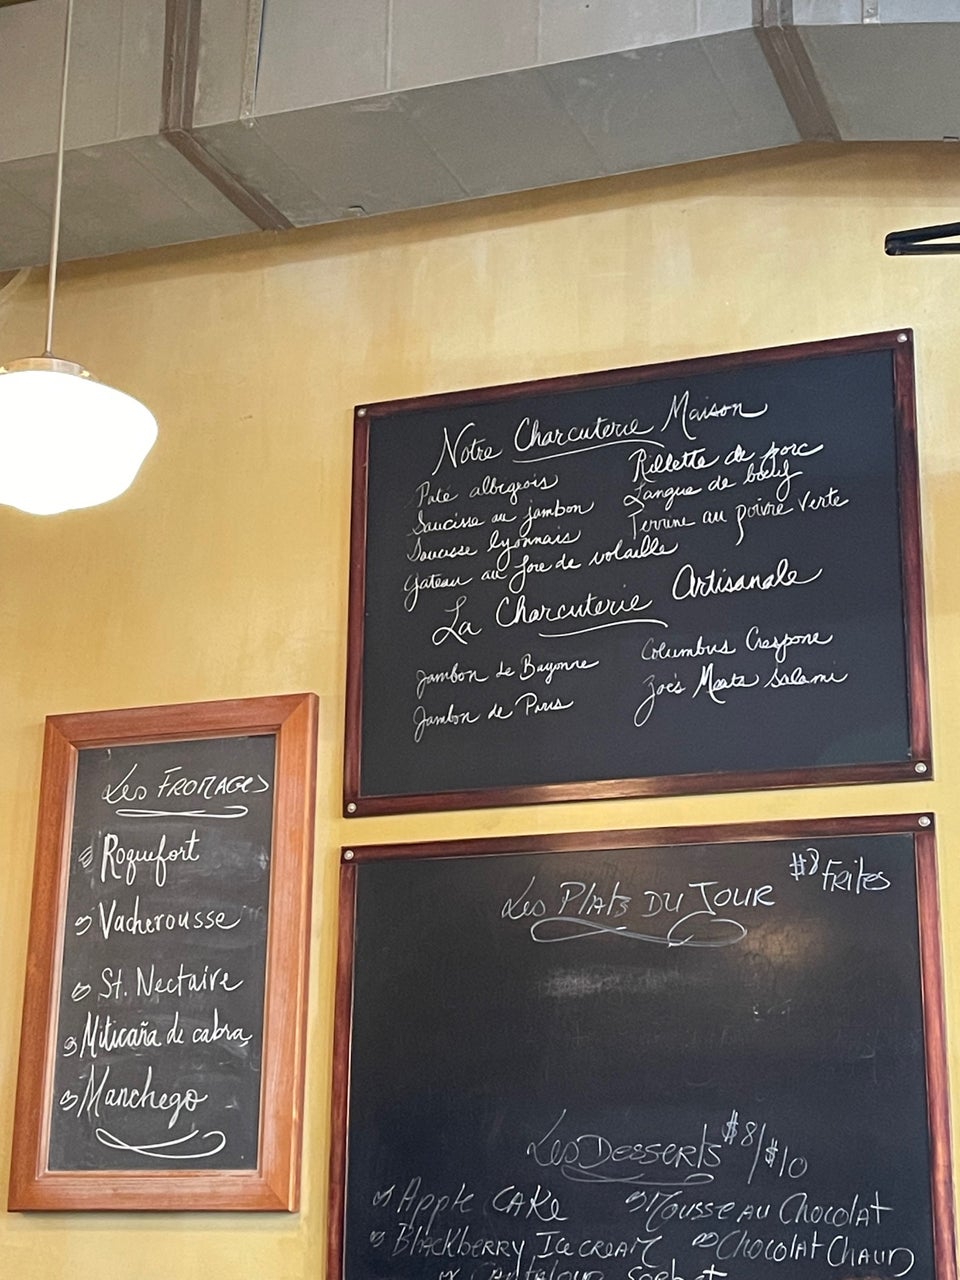 Notre Charcuterie Maison
Paté albigeois
Saucisse au jambon
Saucisse lyonnais
Gateau au foie de volaille
Rillette de porc
Langue de bœuf
Terrine au poivre verte
La Charcuterie Artisanale
Jambon de Bayonne
Jambon de Paris
Columbus Crespone
Zoe's Meats Salami
Les Fromages
Roquefort
Vacherousse
St. Nectaire
Miticaña de cabra
Manchego
Les Plats du Jour
$8 Frites
Les Desserts $8/$10
Apple Cake
Mousse au Chocolat
Blackberry Ice cream
Chocolat Chaud
Sorbet